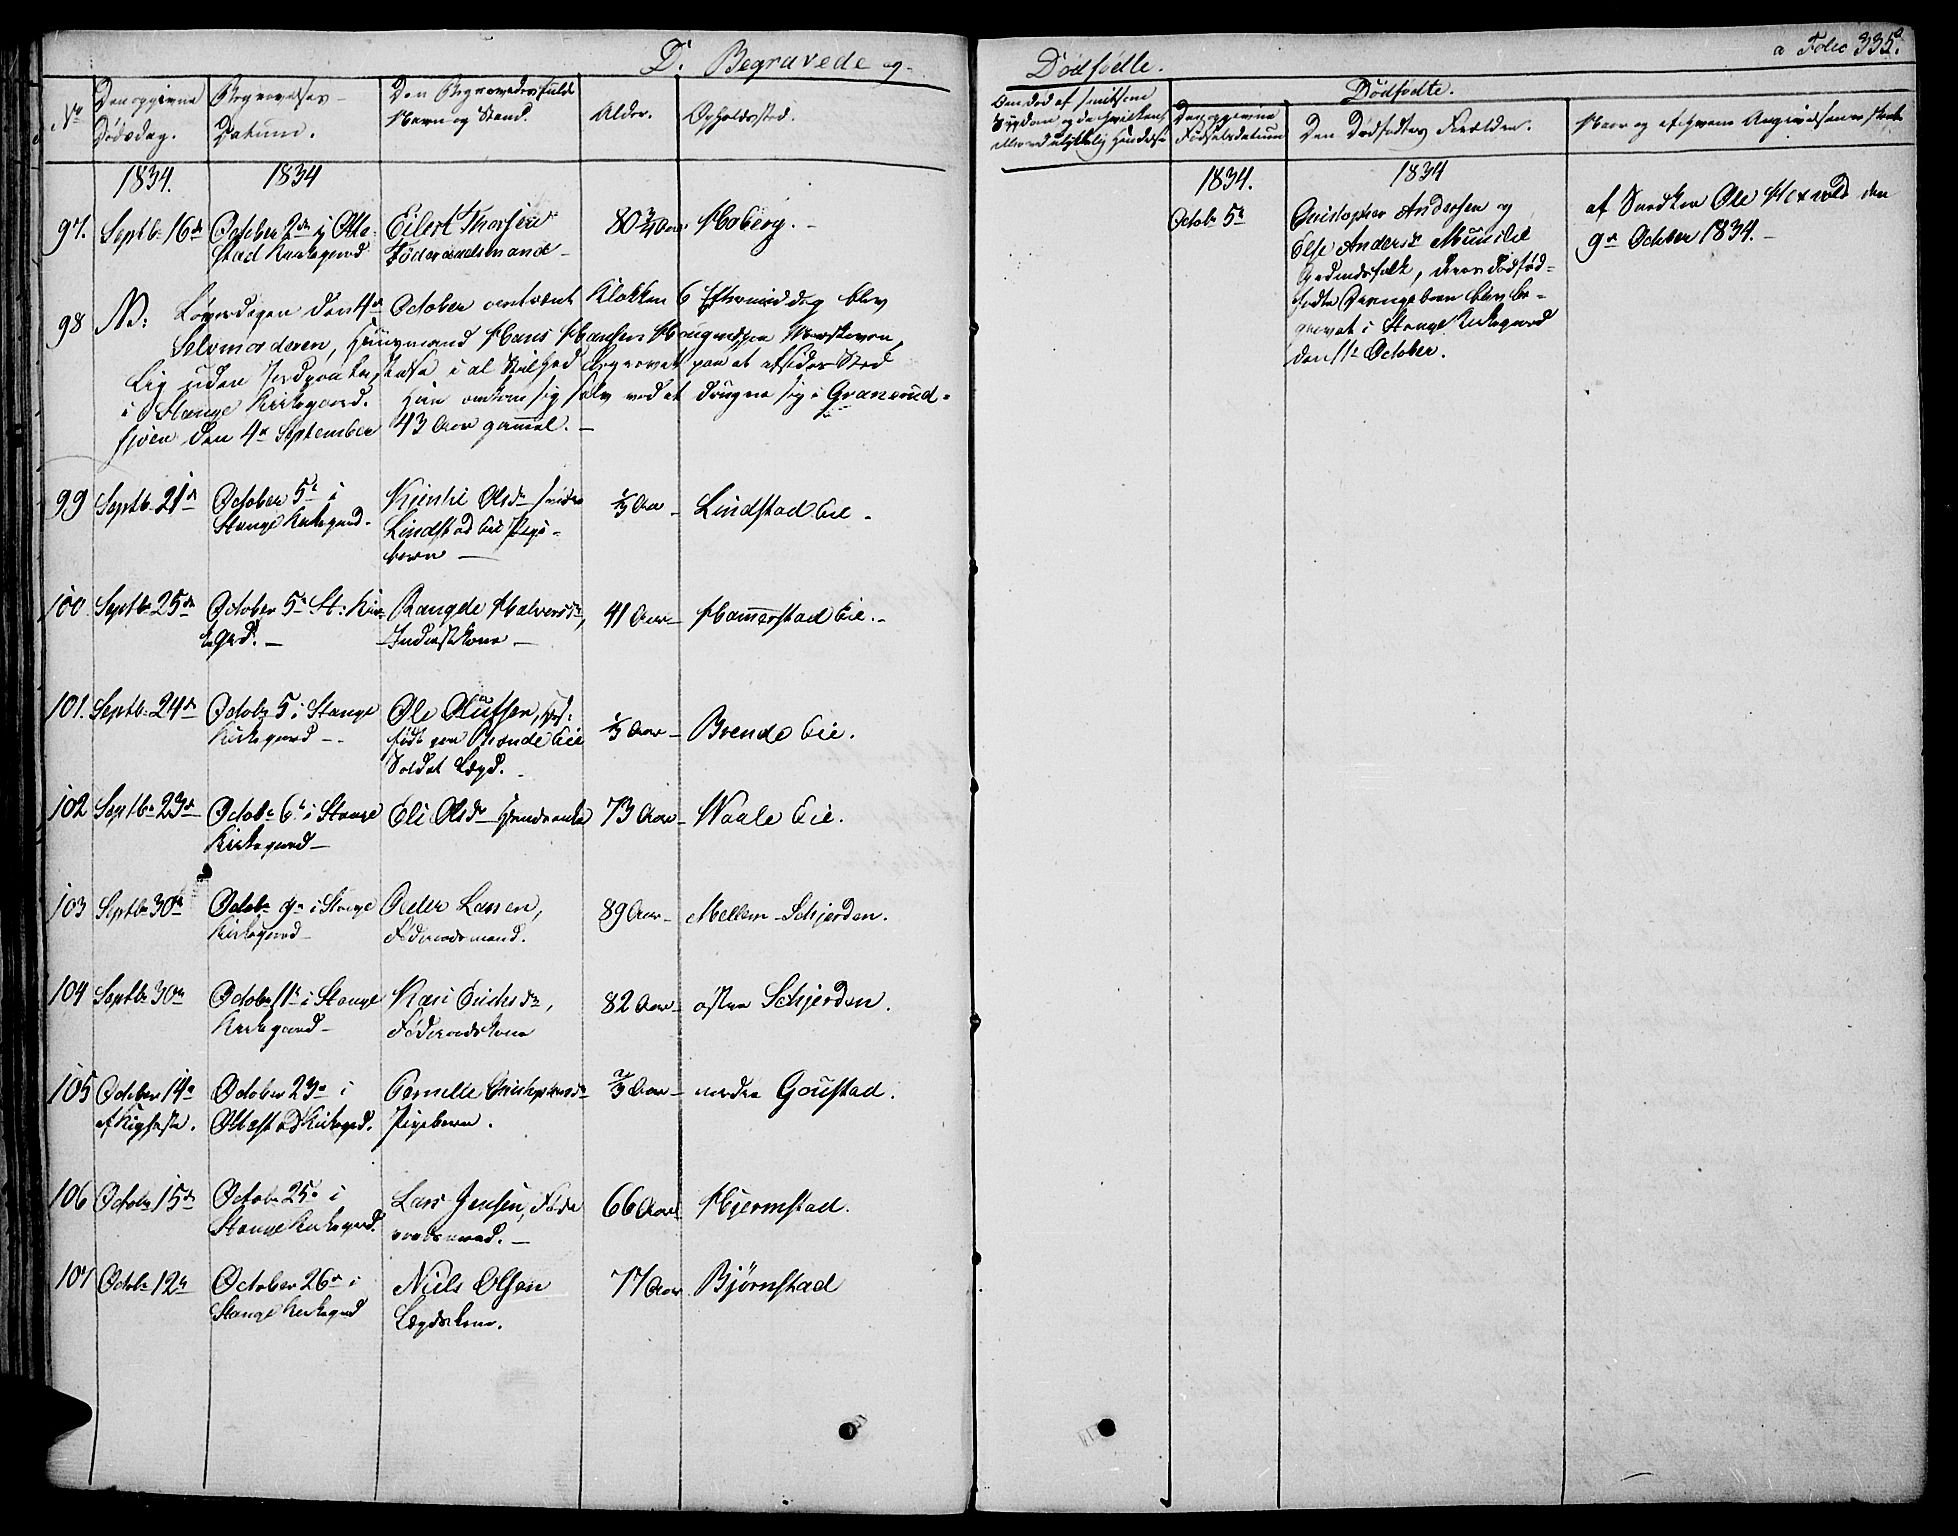 D. Begravede og Dødfødte.
a Folio 335.
No
Den opgivne Dødsdag.
Begravelses-Datum.
Den Begravedes fulde Navn og Stand.
Alder.
Opholdssted.
Dødfødte.
Den opgivne Fødselsdatum
Den Dødfødtes Forældre.
Naar og af hvem Angivelsen er skeet
1834. 1834
1834. 1834
97. Septbr 16de October 2den i Otte- Eilert Thorsen 80 3/4 Aar Hoberg. -
stad Kirkegaard Føderaadsmand -
98 NB: Løverdagen den 4de October omtrent Klokken 6 Eftermiddag blev
Selvmorderen, Huusmand Hans Hansen
Lig uden Jordpaakastelse i al Stilhed begravet paa et afsides Sted
i Stange Kirkegaard. Han omkom sig selv ved at drugne sig i Granerud-
sjøen den 4de September 43 Aar gammel. -
99 Septbr 21de October 5te i Olsdr 1/3 Aar - Lindstad Eie -
Stange Kirkegaard. Lindstad Eie Pige-
barn -
100. Septbr 25de October 5te St: Kir- Rangde Halvorsdr, 41 Aar - Hamerstad Eie. -
kegrd. - Inderstkone -
101. Septbr 24de October 5 i Stange Ole Olufsen, 1/3 Aar - Brende Eie.
Kirkegaard - født paa Brende Eie
Soldat Lægd. -
102 Septbr 23de Octobr 6te i Stange Eli Olsdr 73 Aar - Waale Eie.
Kirkegaard -
103 Septbr 30te Octobr 9de i Stange Peder Larsen, 89 Aar - Mellem-Schjerden.
Kirkegaard - Føderaadsmand.
104 Septbr 30te Octobr 11te i Stange Kari Erichsdr, 82 Aar - østre Schjerden.
Kirkegaard - Føderaadskone
105 October 14de October 23de i Pernille Christophersdr 2/3 Aar - nordre Goustad.
af Kighoste. Ottestad Kirkegrd. Pigebarn.
106 Octobr 15de Octobr 25de i Lars Jensen, Føde- 66 Aar Hjermstad.
Stange Kirkegaard. raadsmand. -
107 Octobr 12te October 26de i Niels Olsen 77 Aar Bjørnstad
Stange Kirkegrd Lægdslem.
Octobr 5te
Christopher Andersen og
Else Andersdr
Gaardmandsfolk, deres dødfød-
fødte Drengebarn blev be-
gravet i Stange Kirkegaard
den 11te October.
af Snedker Ole den
9de October 1834. -